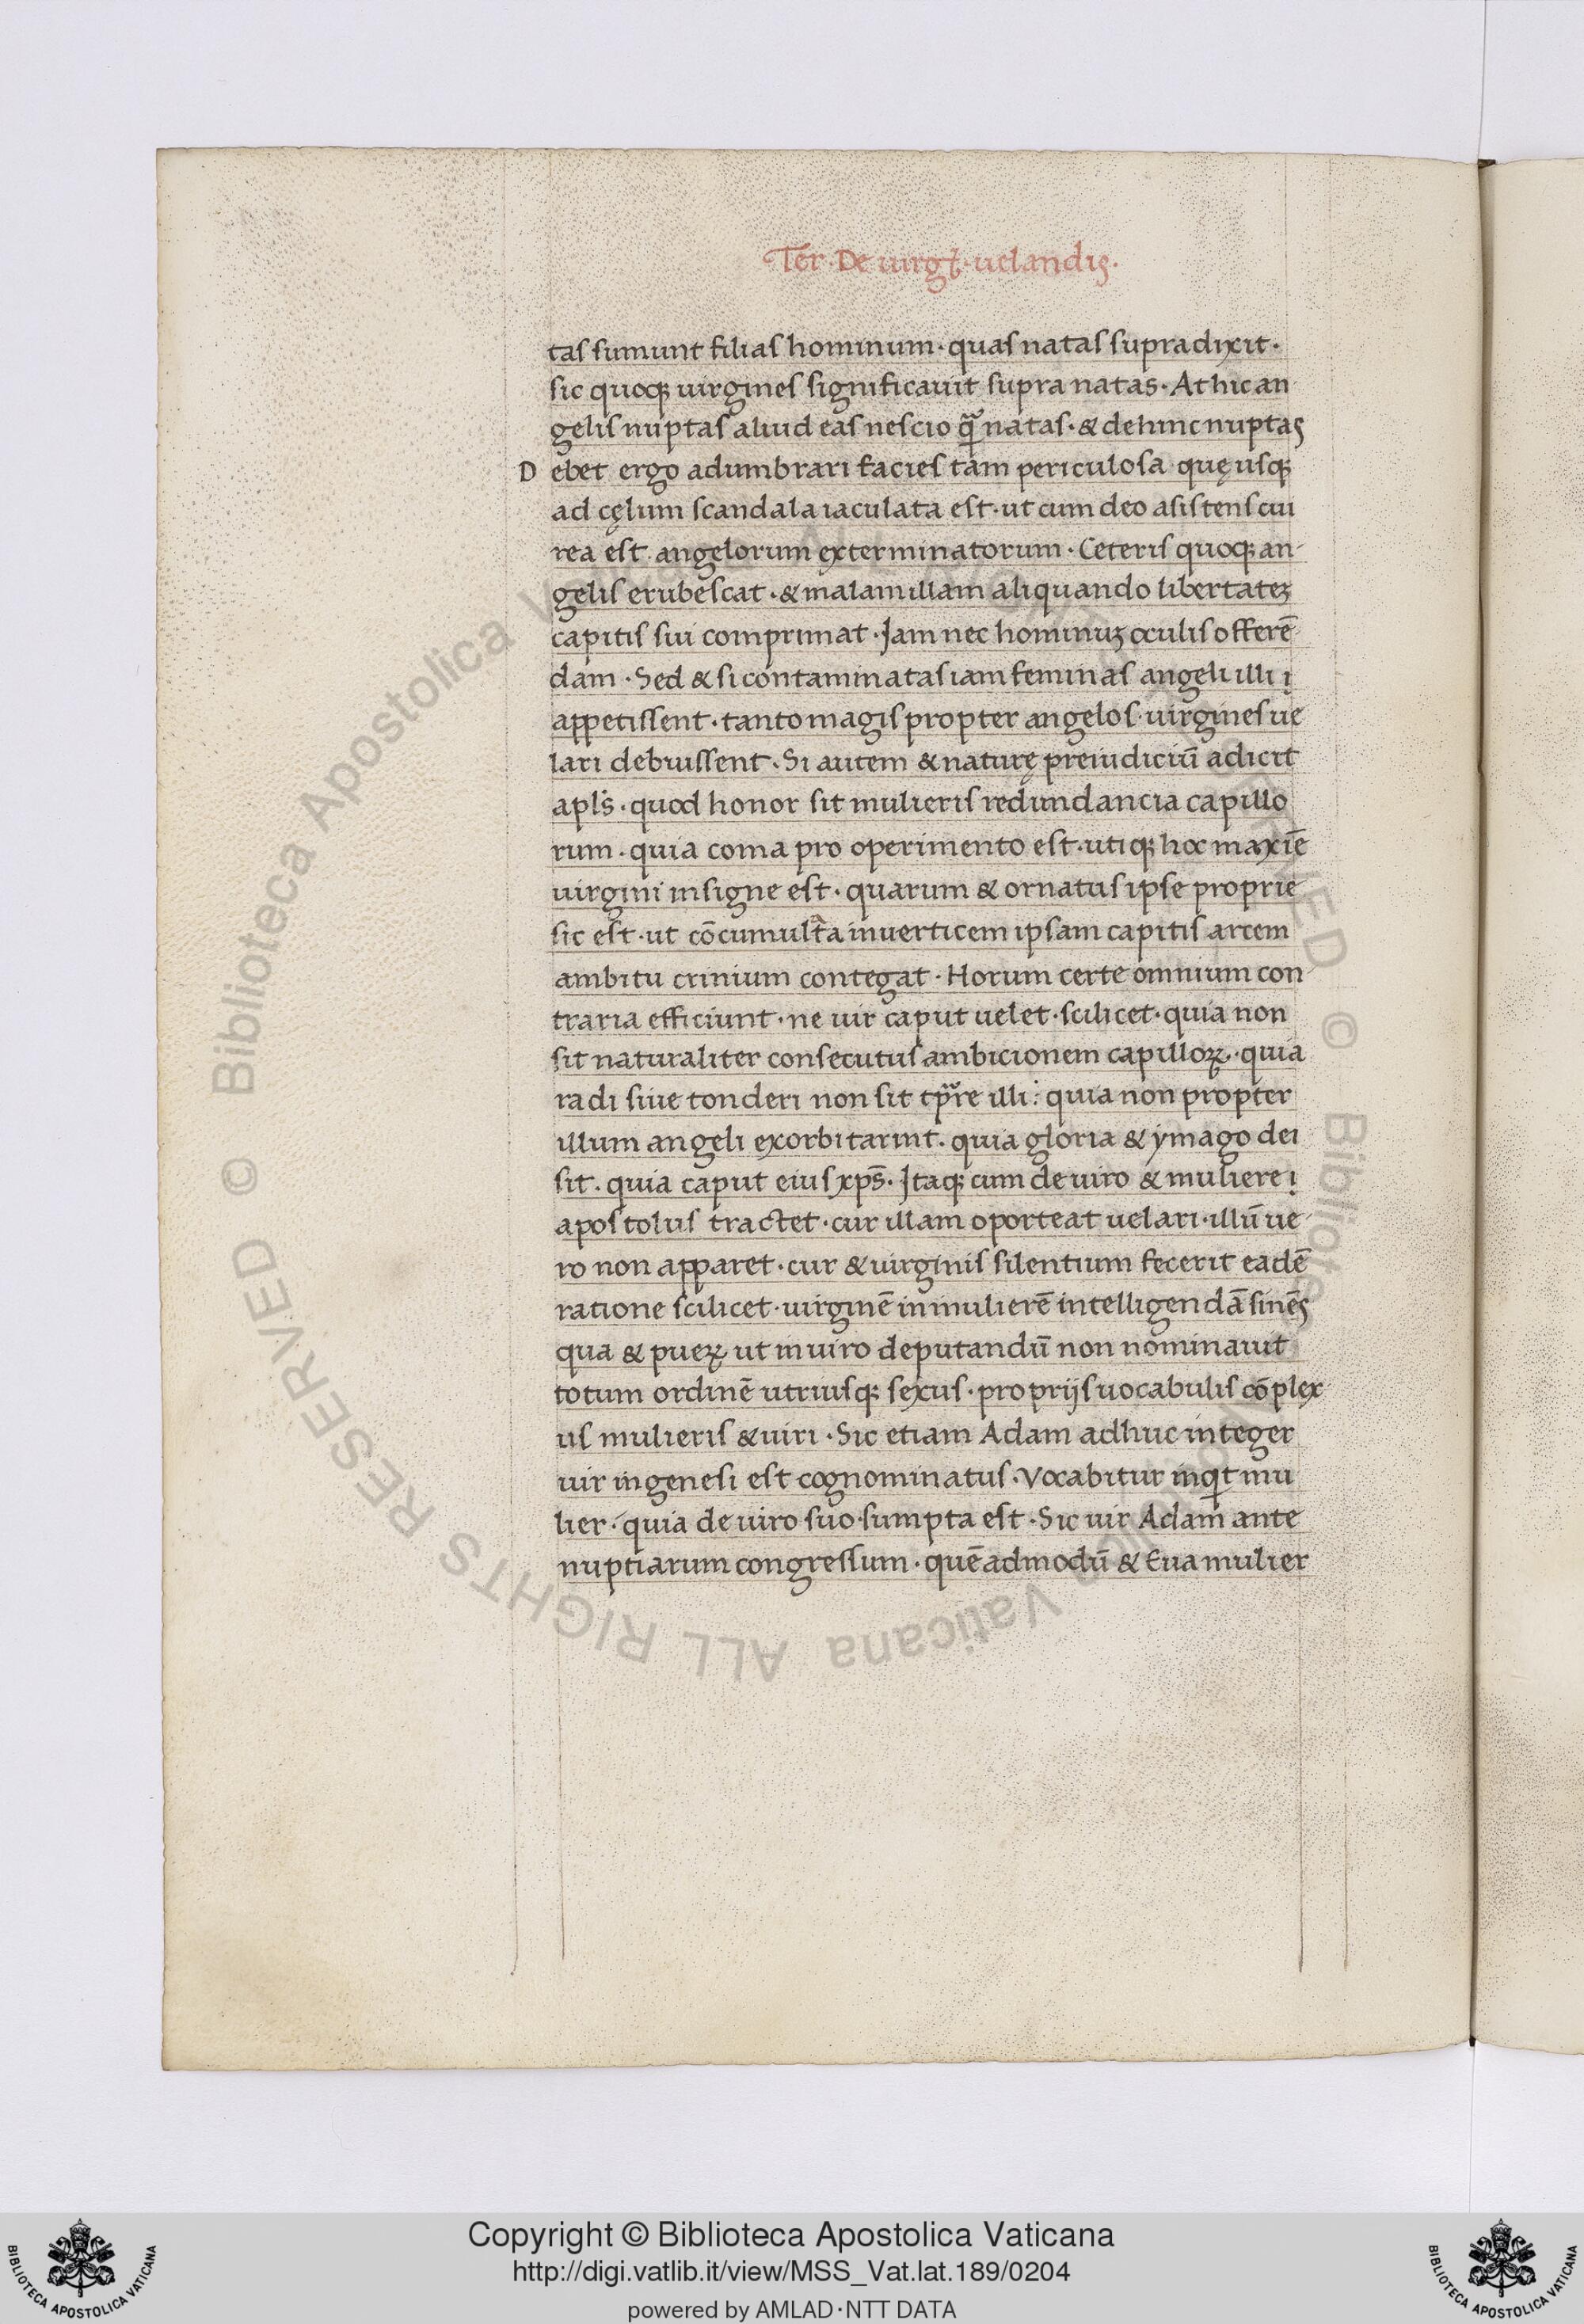 Ter · De uirgƚ · uelandis ·
tas sumunt filias hominum · quas natas supradixit ·
sic quoqꝫ uirgines significauit supra natas · At hic an
gelis nuptas aliud eas nescio q̃ natas · & dehinc nuptas
Debet ergo adumbrari facies tam periculosa quę usqꝫ
ad cęlum scandala iaculata est · ut cum deo asistens cui
rea est angelorum exterminatorum · Ceteris quoqꝫ an-
gelis erubescat · & malam illam aliquando libertateꝫ
capitis sui comprimat · Jam nec hominuꝫ oculis offerē-
dam · Sed & si contaminatas iam feminas angeli illi
appetissent · tanto magis propter angelos uirgines ue
lari debuissent · Si autem & naturę preiudiciū adicit
apls̄ · quod honor sit mulieris redundancia capillo
rum · quia coma pro operimento est · utiqꝫ hoc maxīe
uirgini insigne est · quarum & ornatus ipse proprie
sic est · ut cōcumulta in uerticem ipsam capitis arcem
ambitu crinium contegat · Horum certe omnium con-
traria efficiunt · ne uir caput uelet · scilicet · quia non
sit naturaliter consecutus ambicionem capilloꝝ · quia
radi siue tonderi non sit tp̄re illi : quia non propter
illum angeli exorbitarint . quia gloria & ymago dei
sit . quia caput eius xp̄s . Jtaqꝫ cum de uiro & muliere
apostolus tractet · cur illam oporteat uelari · illū ue-
ro non apparet · cur & uirginis silentium fecerit eadē
ratione scilicet · uirginē in mulierē intelligendā sinēs
qua & pueꝝ ut in uiro deputandū non nominauit
totum ordinē utriusqꝫ sexus · proprijs uocabulis cōplex
us mulieris & uiri · Sic etiam Adam adhuc integer
uir in genesi est cognominatus · Vocabitur inqit mu
lier · quia de uiro suo sumpta est · Sic uir Adam ante
nuptiarum congressum · quēadmodū & Eua mulier
© Biblioteca Apostolica Vaticana ALL RIGHTS RESERVED
© Biblioteca Apostolica Vaticana ALL RIGHTS RESERVED
Copyright © Biblioteca Apostolica Vaticana
http://digi.vatlib.it/view/MSS_Vat.lat.189/0204
powered by AMLAD·NTT DATA
BIBLIOTECA APOSTOLICA VATICANA
BIBLIOTECA APOSTOLICA VATICANA